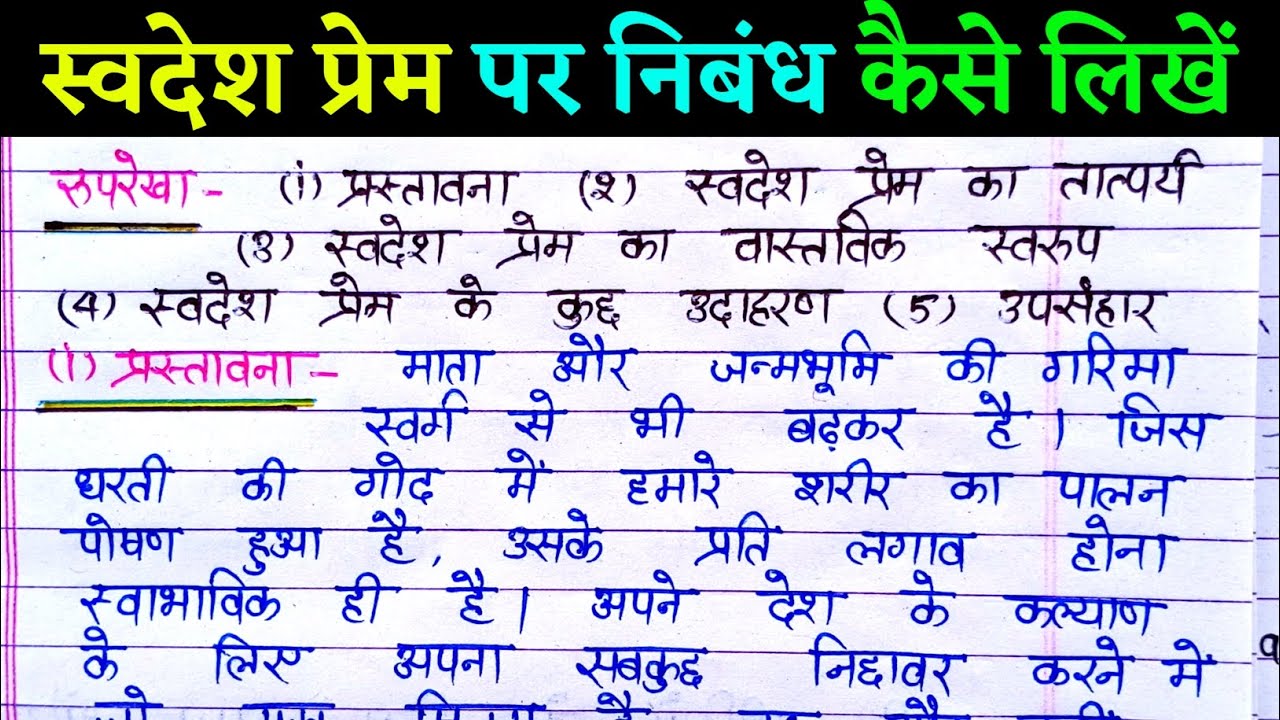 स्वदेश प्रेम पर निबंध कैसे लिखें
रुपरेखा - (i) प्रस्तावना (२) स्वदेश प्रेम का तात्पर्य
(3) स्वदेश प्रेम का वास्तविक स्वरुप
(4) स्वदेश प्रेम के कुछ उदाहरण (5) उपसंहार
(i) प्रस्तावना - माता और जन्मभूमि की गरिमा
स्वर्ग से भी बढ़कर है । जिस
धरती की गोद में हमारे शरीर का पालन
पोषण हुआ है, उसके प्रति लगाव होना
स्वाभाविक ही है। अपने देश के कल्याण
के लिए अपना सबकुछ निछावर करने में